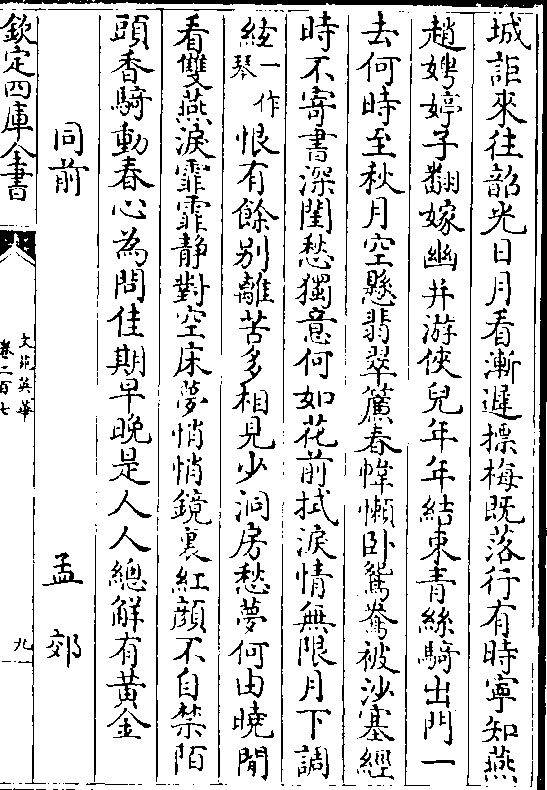 城詎來往韶光日月看漸遲摽梅既落行有時寧知燕
趙娉婷子翻嫁幽并游俠兒年年結束青絲騎出門一
去何時至秋月空懸翡翠簾春幃懶卧鴛鴦被沙塞經
時不寄書深閨愁獨意何如花前拭淚情無限月下調
絃一作琴恨有餘别離苦多相見少洞房愁夢何由曉閒
看雙燕淚霏霏静對空床夢悄悄鏡裏紅顏不自禁陌
頭香騎動春心為問佳期早晚是人人總解有黄金
同前 孟郊
欽定四庫全書
文苑英華
卷二百七
九